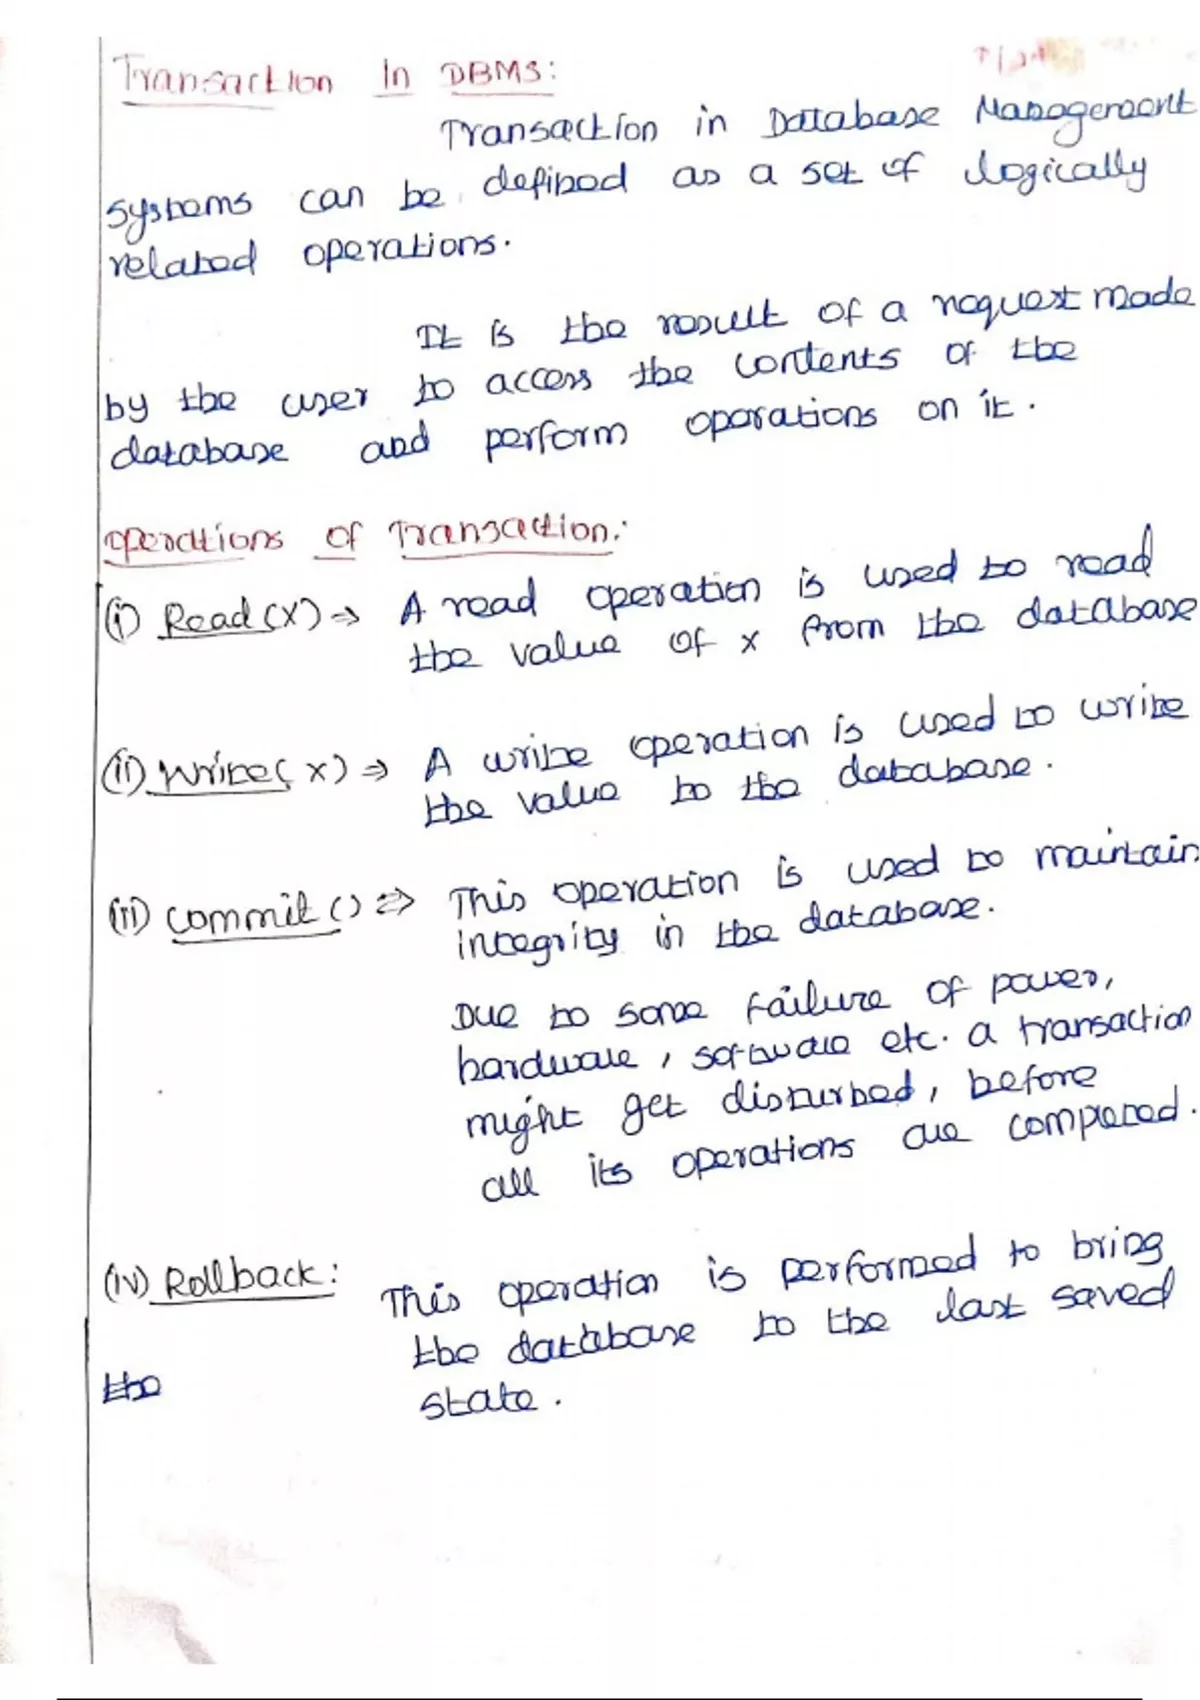 Transaction In DBMS:
Transaction in Database Management
systems can be defined as a set of logically
related operations.
It is the result of a request made
by the user to access the contents of the
database and perform operations on it.
Operations of Transaction:
(i) Read(X) ⇒ A read operation is used to read
the value of x from the database
(ii) Write(X) ⇒ A write operation is used to write
the value to the database.
(iii) Commit() ⇒ This operation is used to maintain
integrity in the database.
Due to some failure of power,
hardware, software etc. a transaction
might get disturbed, before
all its operations are completed.
(iv) Rollback: This operation is performed to bring
the database to the last saved
the state.